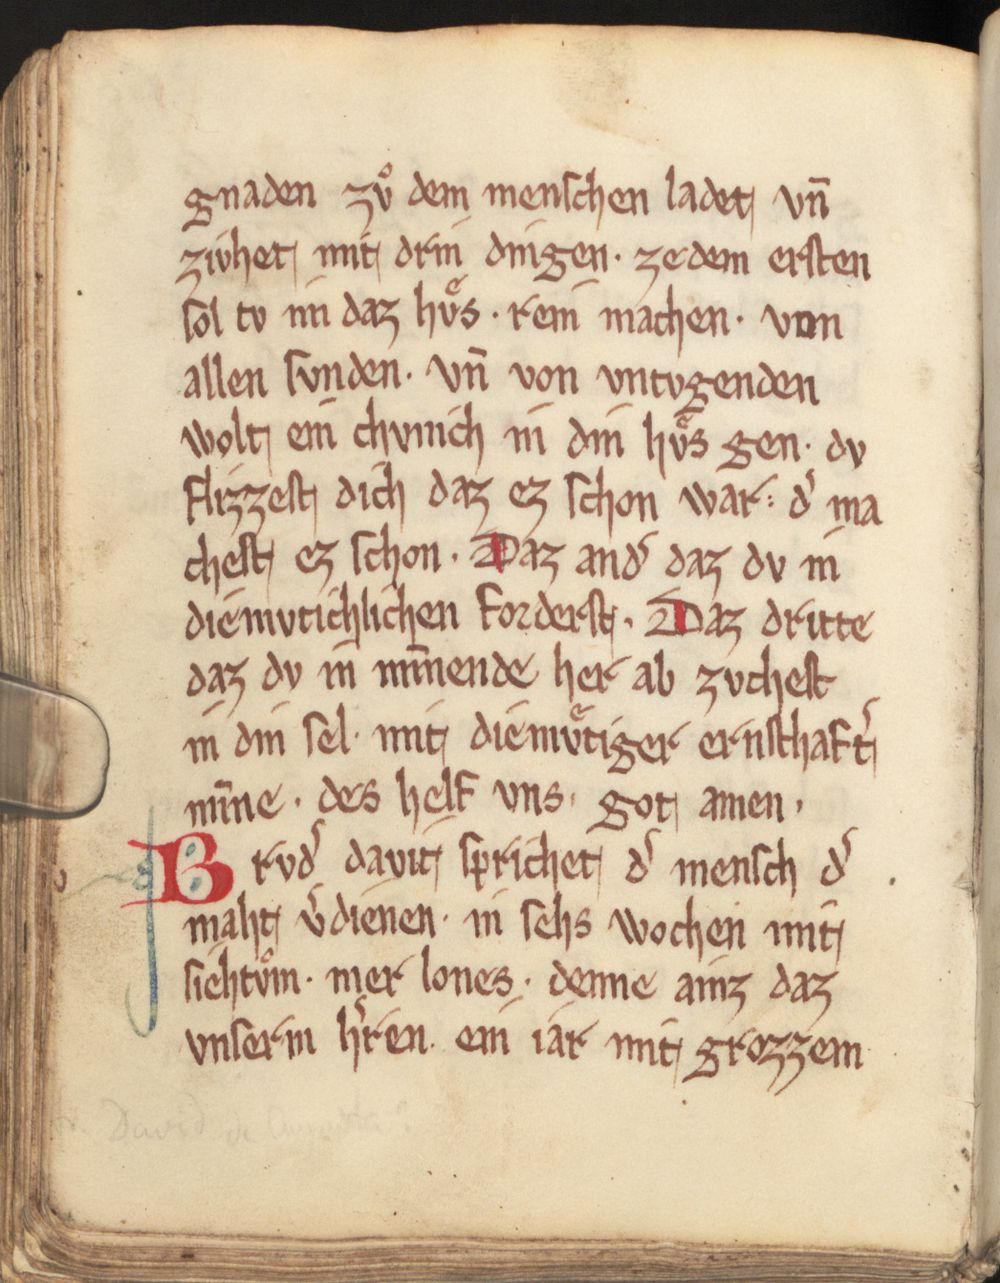 gnaden zvͦ dem menschen ladet vn̄
zivhet mit drin dingen · ze dem ersten
sol tv im daz hvͤs · rein machen · von
allen svnden · vn̄ von vntvgenden
wolt ein chvnich in din hvͤs gen · dv
flizzest dich daz ez schon war : d᷎ ma
chest ez schon · Daz and᷎ daz dv in
diemvtichlichen forderst · Daz dritte
daz dv in min̄ende her ab zvchest
in din sel · mit diemvͤtiger ernschaft᷎
min̄e · des helf vns · got amen ·
Brvd᷎ davit sprichet d᷎ mensch d᷎
maht v᷎dienen · in sehs wochen mit
siehtvͦm · mer lones · denne ainz daz
vnserm h᷎ren · ein iar mit grozzem
David de Augusta